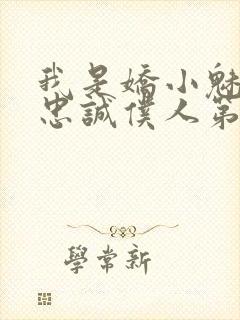 我是嬌小魅
忠誠僕人第
學常新